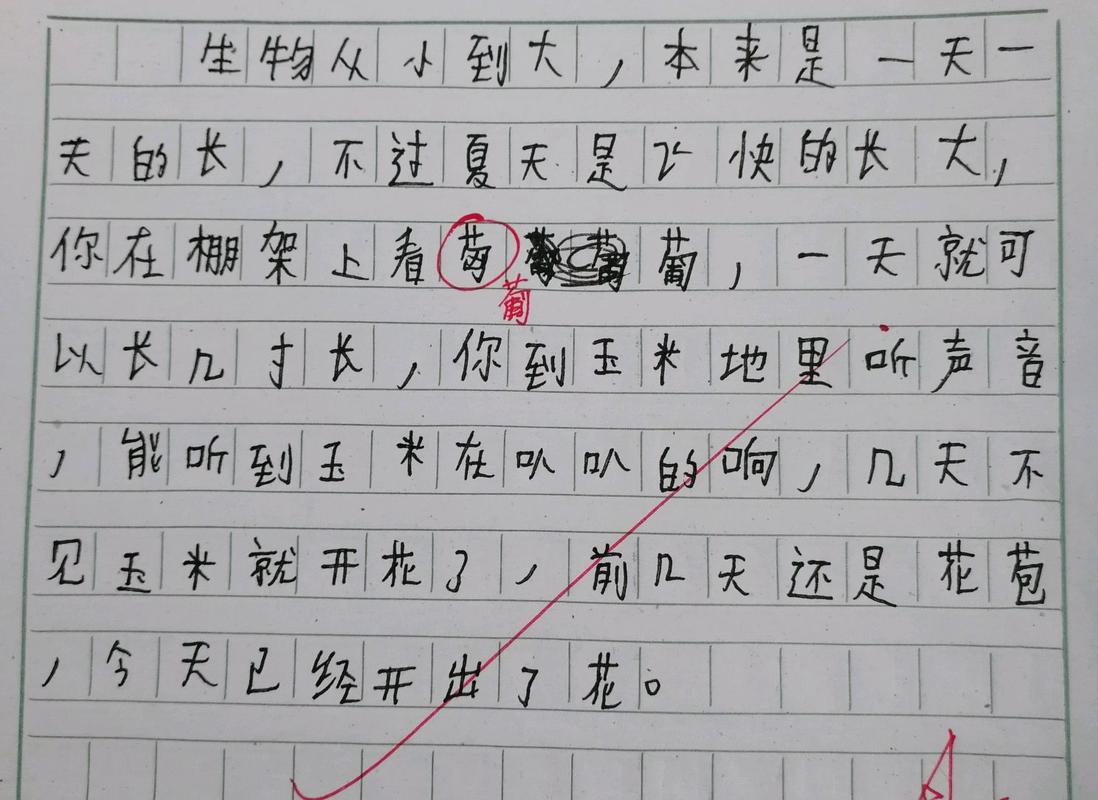 生物从小到大，本来是一天一
天的长，不过夏天是飞快的长大，
你在棚架上看葡葡，一天就可
葡
以长几寸长，你到玉米地里听声音
，能听到玉米在叭叭的响，几天不
见玉米就开花了，前几天还是花苞
，今天已经开出了花。